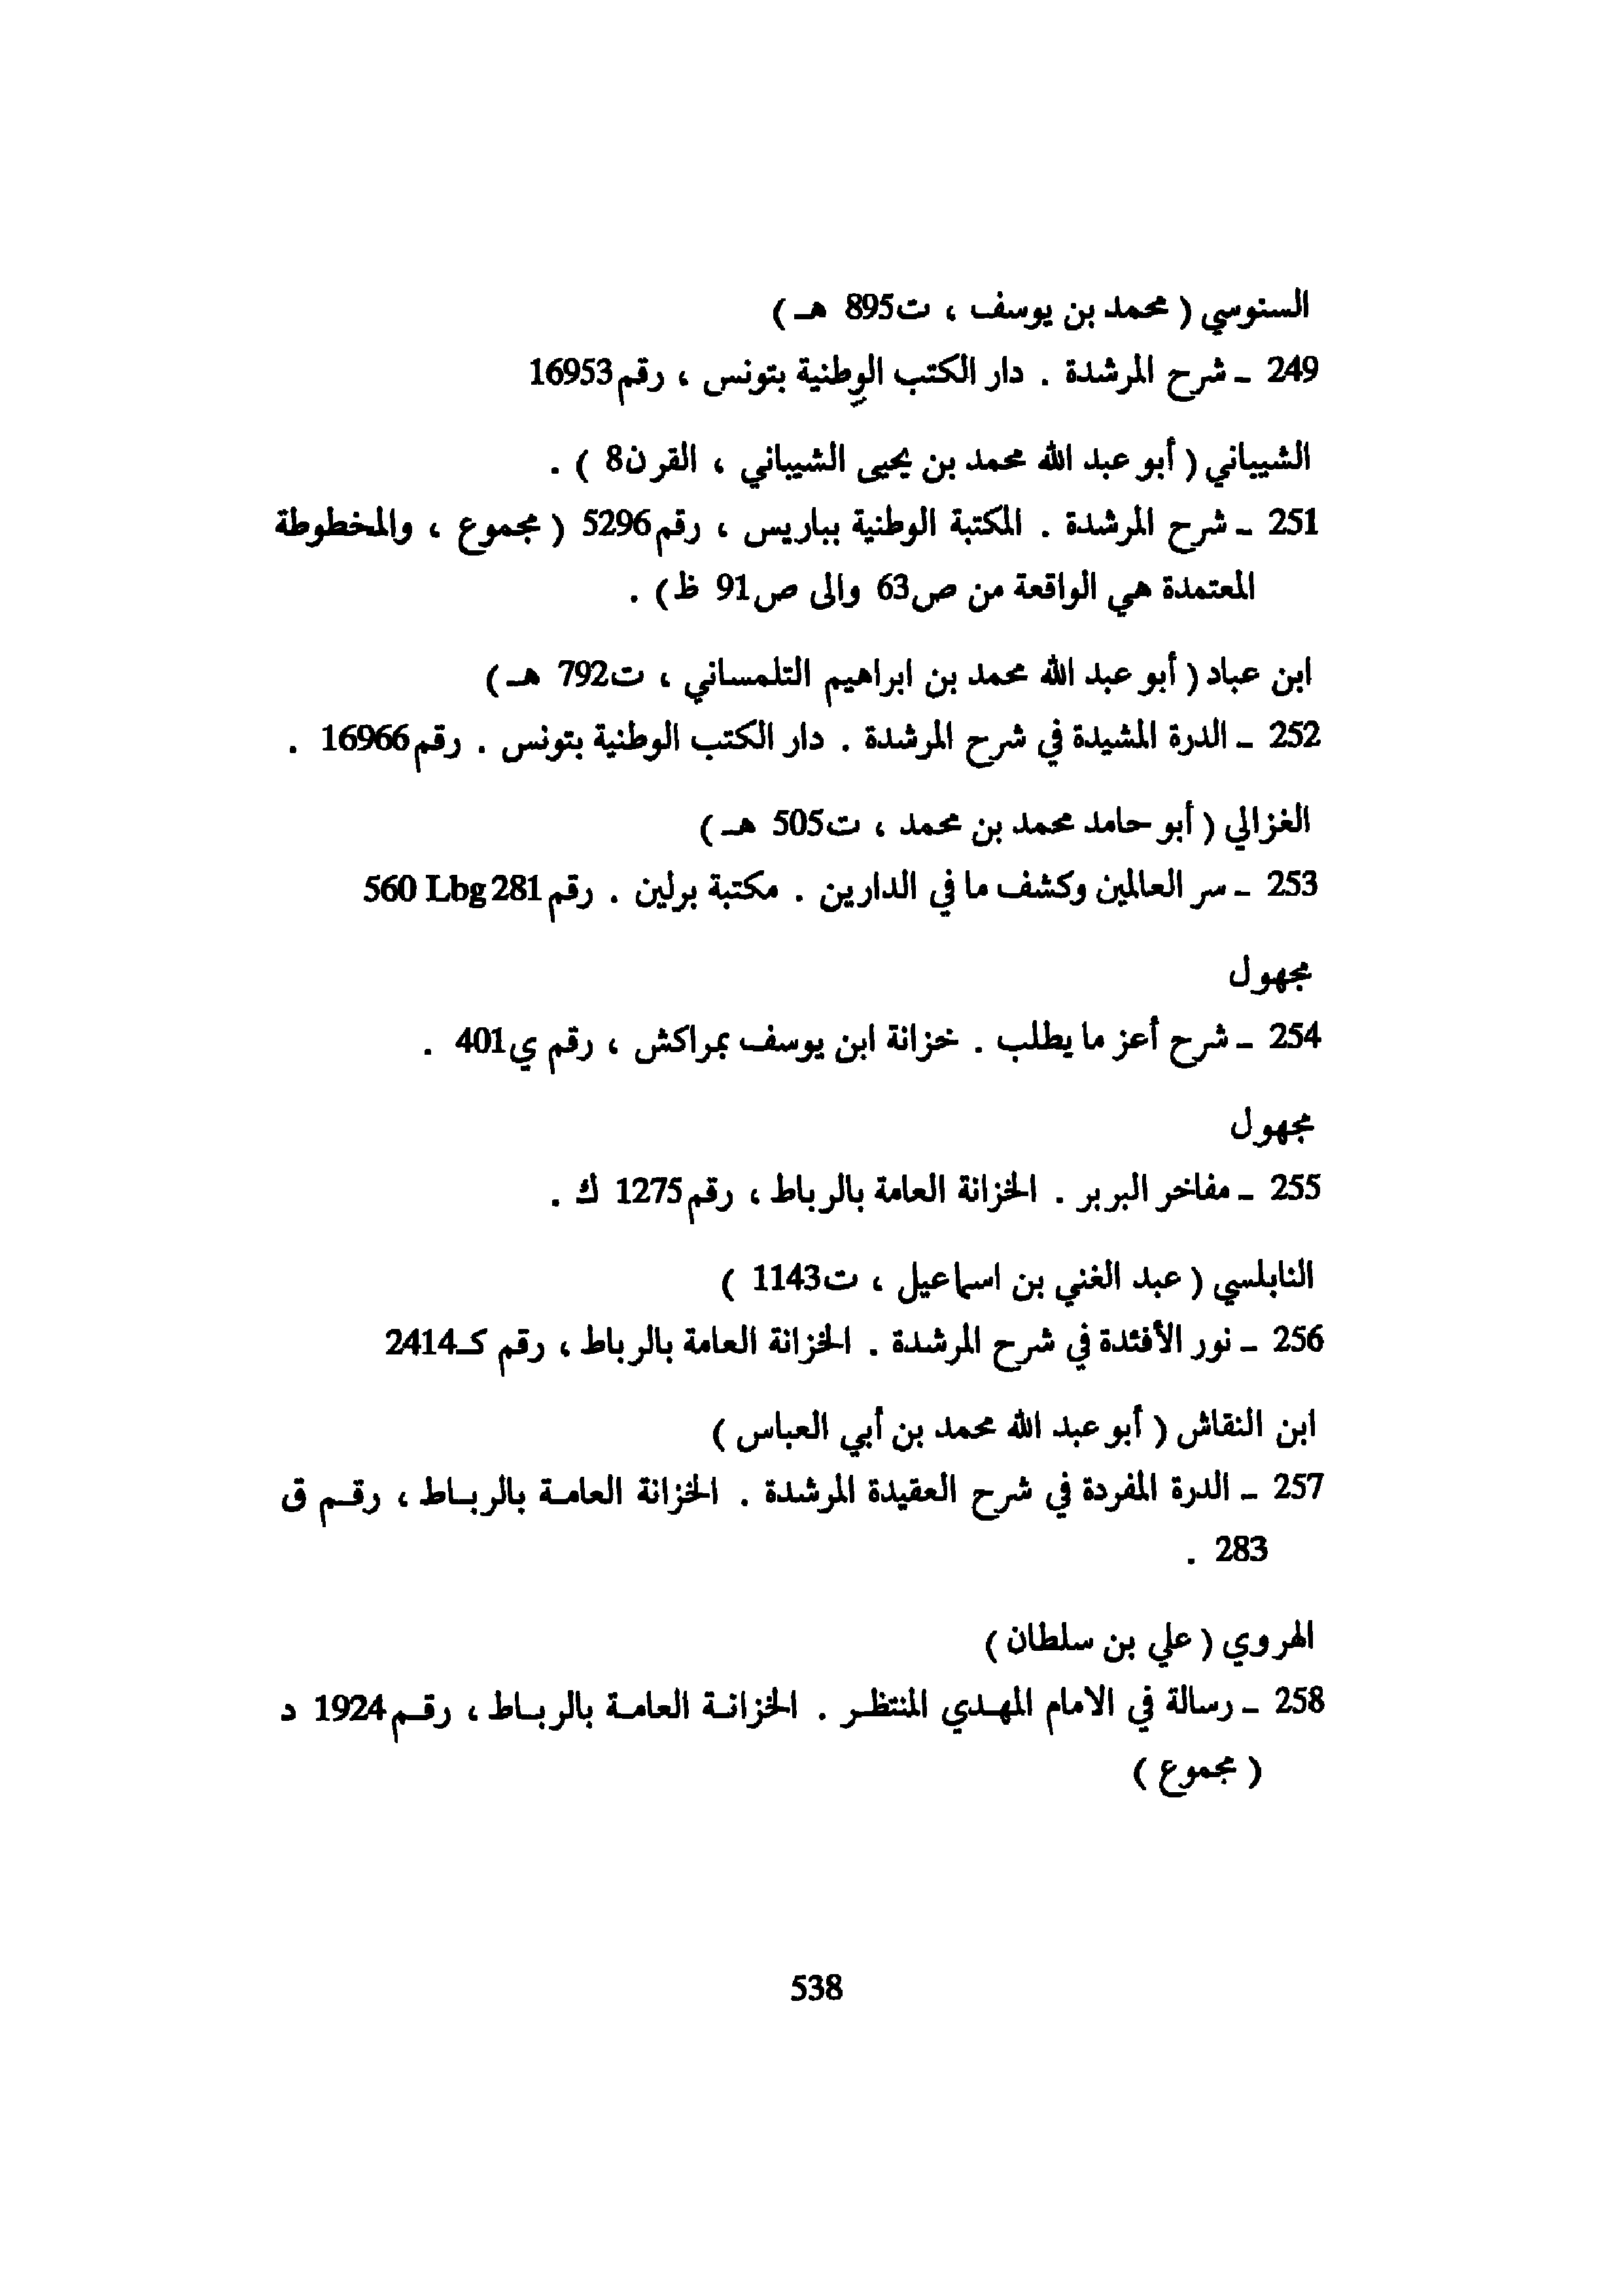 السنوسي ( محمد بن يوسف ، ت895 هـ )
249 ـ شرح المرشدة . دار الكتب الوطنية بتونس ، رقم16953
الشيباني ( أبو عبد الله محمد بن يحيى الشيباني ، القرن8 ) .
251 ـ شرح المرشدة . المكتبة الوطنية بباريس ، رقم5296 ( مجموع ، والمخطوطة
المعتمدة هي الواقعة من ص63 والى ص91 ظ ) .
ابن عباد ( أبو عبد الله محمد بن ابراهيم التلمساني ، ت792 هـ )
252 ـ الدرة المشيدة في شرح المرشدة . دار الكتب الوطنية بتونس . رقم16966 .
الغزالي ( أبو حامد محمد بن محمد ، ت505 هـ )
253 ـ سر العالمين وكشف ما في الدارين . مكتبة برلين . رقم281 560 Lbg
مجهول
254 ـ شرح أعز ما يطلب . خزانة ابن يوسف بمراكش ، رقم ي401 .
مجهول
255 ـ مفاخر البربر . الخزانة العامة بالرباط ، رقم1275 ك .
النابلسي ( عبد الغني بن اسماعيل ، ت1143 )
256 ـ نور الأفئدة في شرح المرشدة . الخزانة العامة بالرباط ، رقم كـ2414
ابن النقاش ( أبو عبد الله محمد بن أبي العباس )
257 ـ الدرة المفردة في شرح العقيدة المرشدة . الخزانة العامـة بالربـاط ، رقـم ق
283 .
الهروي ( علي بن سلطان )
258 ـ رسالة في الامام المهـدي المنتظـر . الخزانـة العامـة بالربـاط ، رقـم1924 د
( مجموع )
538